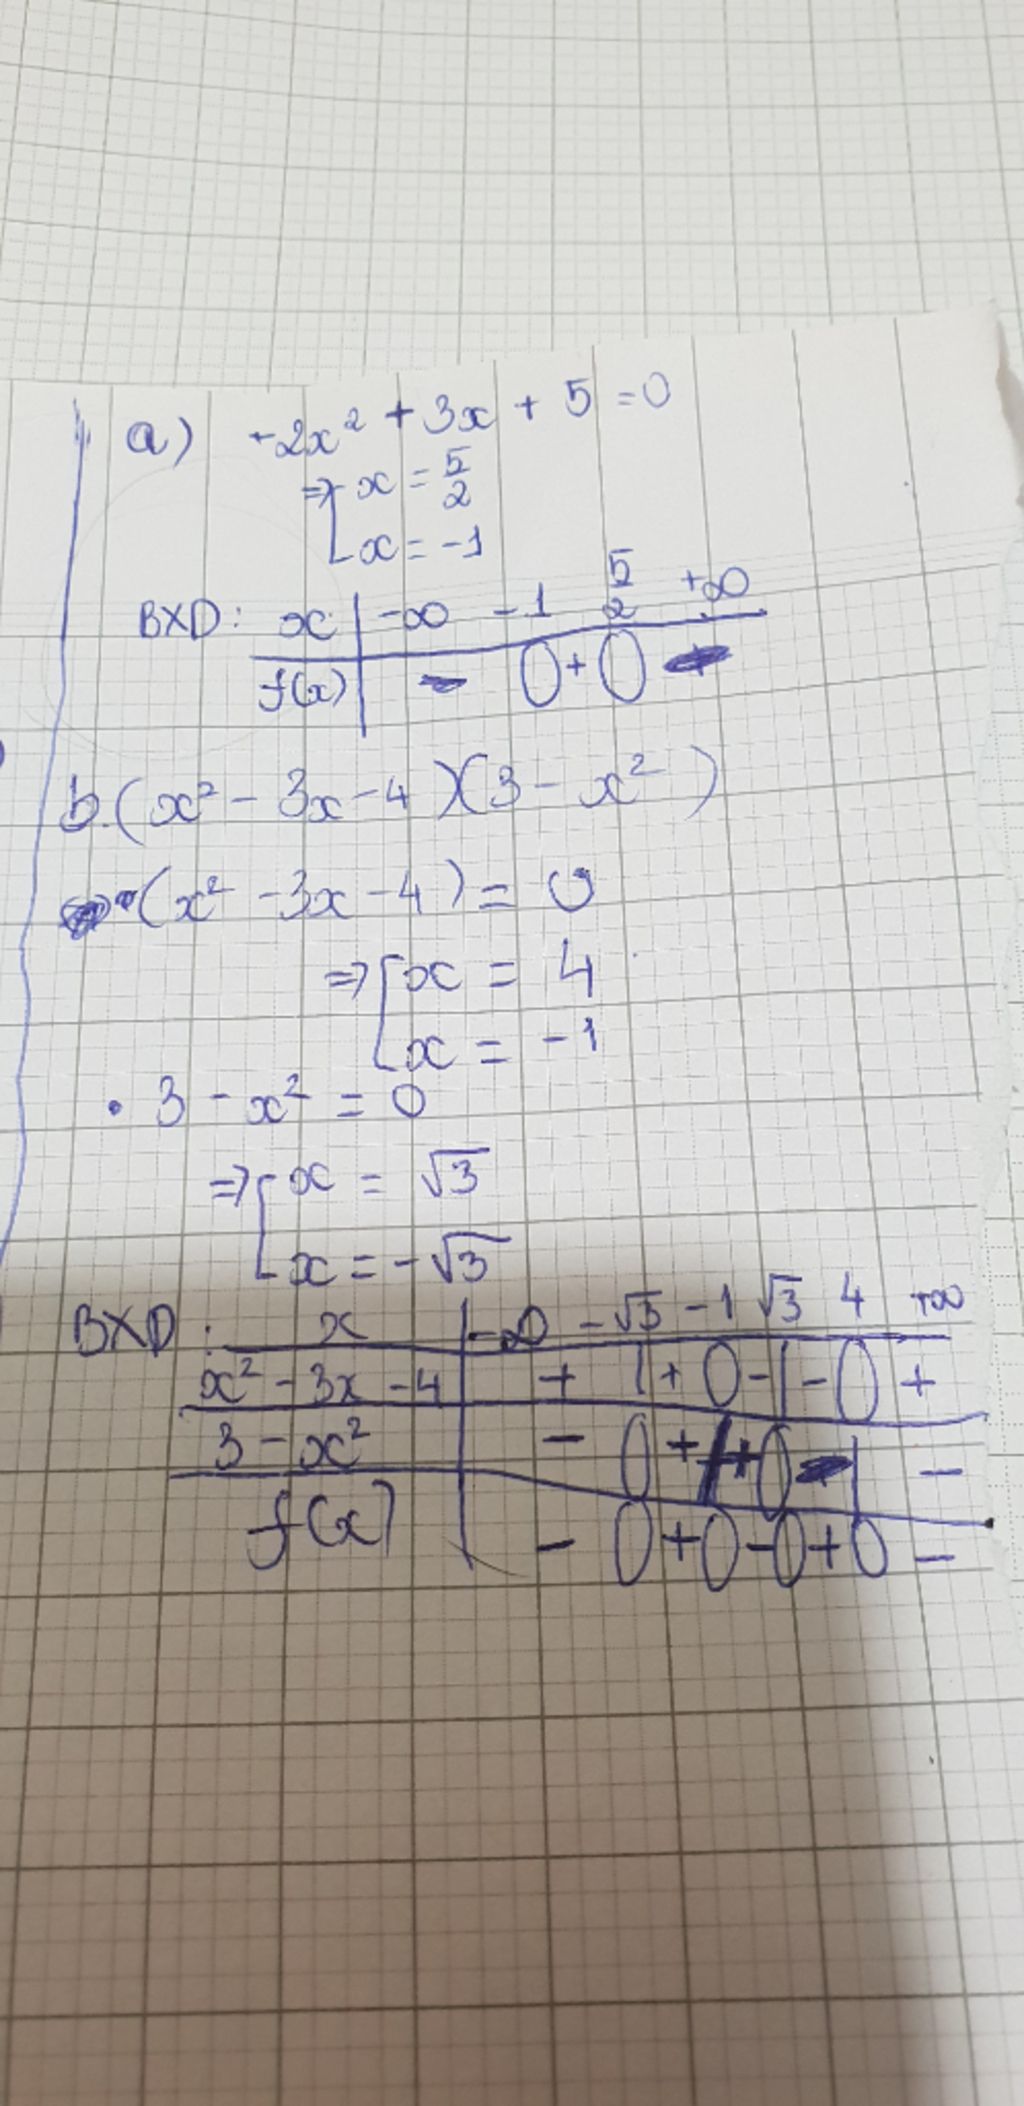 a) -2x² + 3x + 5 = 0
⇒ [ x = 5/2
x = -1
BXD: x | -∞ -1 5/2 +∞
f(x) | - 0 + 0 -
b. (x² - 3x - 4)(3 - x²)
• (x² - 3x - 4) = 0
⇒ [ x = 4
x = -1
• 3 - x² = 0
⇒ [ x = √3
x = -√3
BXD: x | -∞ -√3 -1 √3 4 +∞
x² - 3x - 4 | + | + 0 - | - 0 +
3 - x² | - 0 + | + 0 - | -
f(x) | - 0 + 0 - 0 + 0 -